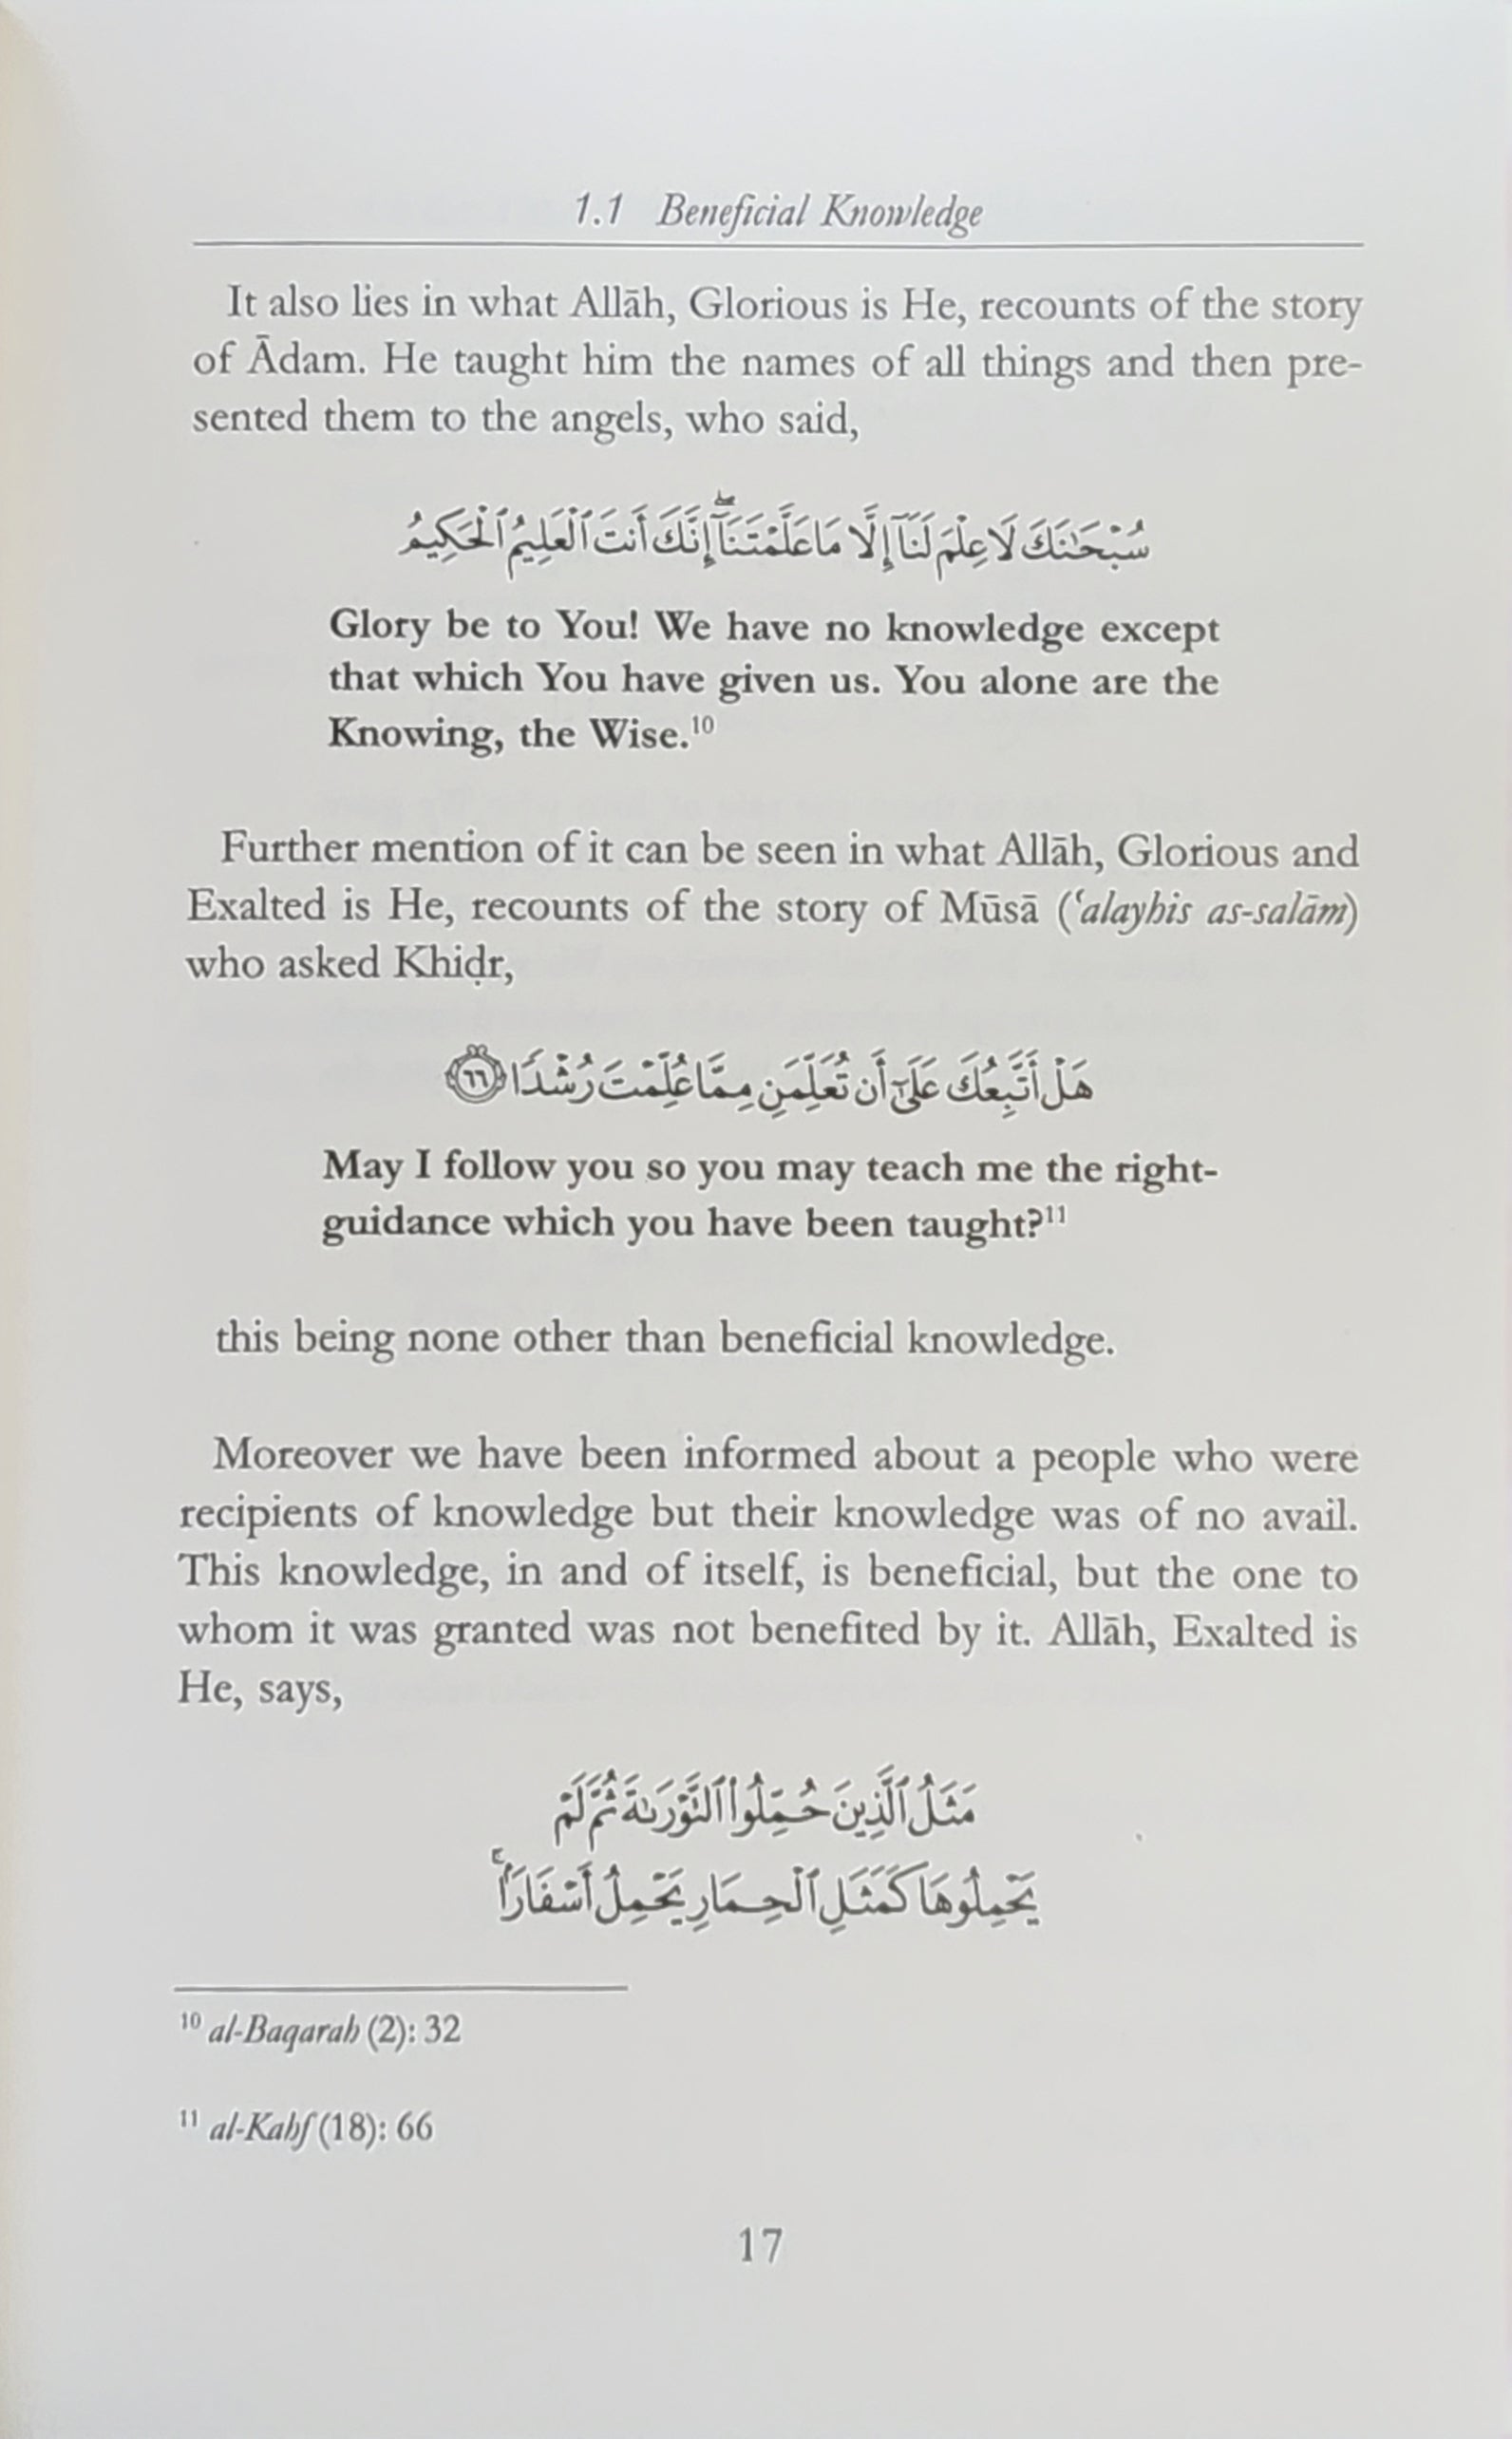 1.1 Beneficial Knowledge
It also lies in what Allāh, Glorious is He, recounts of the story
of Ādam. He taught him the names of all things and then pre-
sented them to the angels, who said,
سُبْحَٰنَكَ لَا عِلْمَ لَنَآ إِلَّا مَا عَلَّمْتَنَآ ۖ إِنَّكَ أَنتَ ٱلْعَلِيمُ ٱلْحَكِيمُ
Glory be to You! We have no knowledge except
that which You have given us. You alone are the
Knowing, the Wise.¹⁰
Further mention of it can be seen in what Allāh, Glorious and
Exalted is He, recounts of the story of Mūsā (‘alayhis as-salām)
who asked Khiḍr,
هَلْ أَتَّبِعُكَ عَلَىٰٓ أَن تُعَلِّمَنِ مِمَّا عُلِّمْتَ رُشْدًا ٦٦
May I follow you so you may teach me the right-
guidance which you have been taught?¹¹
this being none other than beneficial knowledge.
Moreover we have been informed about a people who were
recipients of knowledge but their knowledge was of no avail.
This knowledge, in and of itself, is beneficial, but the one to
whom it was granted was not benefited by it. Allāh, Exalted is
He, says,
مَثَلُ ٱلَّذِينَ حُمِّلُوا۟ ٱلتَّوْرَىٰةَ ثُمَّ لَمْ
يَحْمِلُوهَا كَمَثَلِ ٱلْحِمَارِ يَحْمِلُ أَسْفَارًۢا ۚ
¹⁰ al-Baqarah (2): 32
¹¹ al-Kahf (18): 66
17